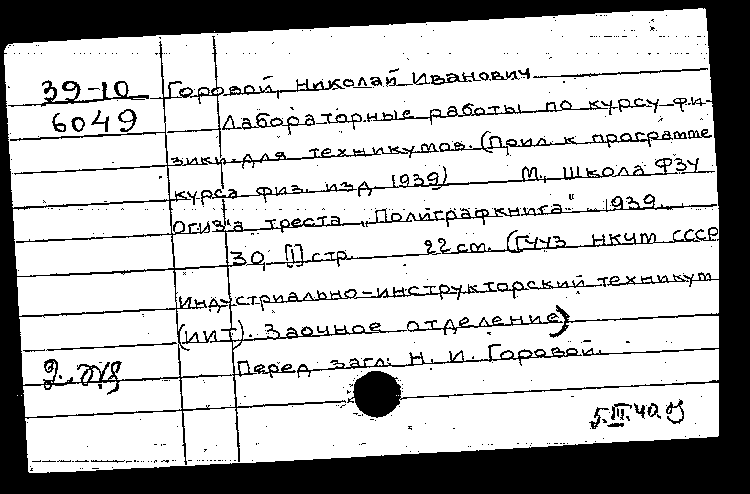 39-10
6049
Горовой, Николай Иванович
Лабораторные работы по курсу фи-
зики для техникумов. (Прил. к программе
курса физ. изд 1939) М., Школа ФЗУ
Огиз'а треста „Полиграфкнига“ 1939.
30, [1] стр. 22 см. (ГУУЗ НКЧМ СССР
Индустриально-инструкторский техникум
(ИИТ). Заочное отделение)
Перед загл: Н. И. Горовой.
5.III.40.